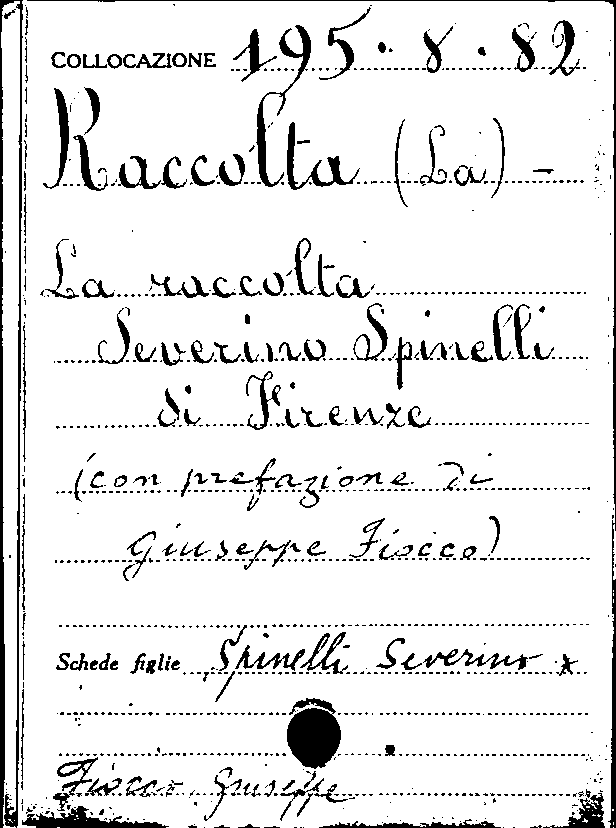 COLLOCAZIONE 195.8.82
Raccolta (La) -
La raccolta
Severino Spinelli
di Firenze
(con prefazione di
Giuseppe Fiocco)
Schede figlie Spinelli Severino x
Fiocco, Giuseppe